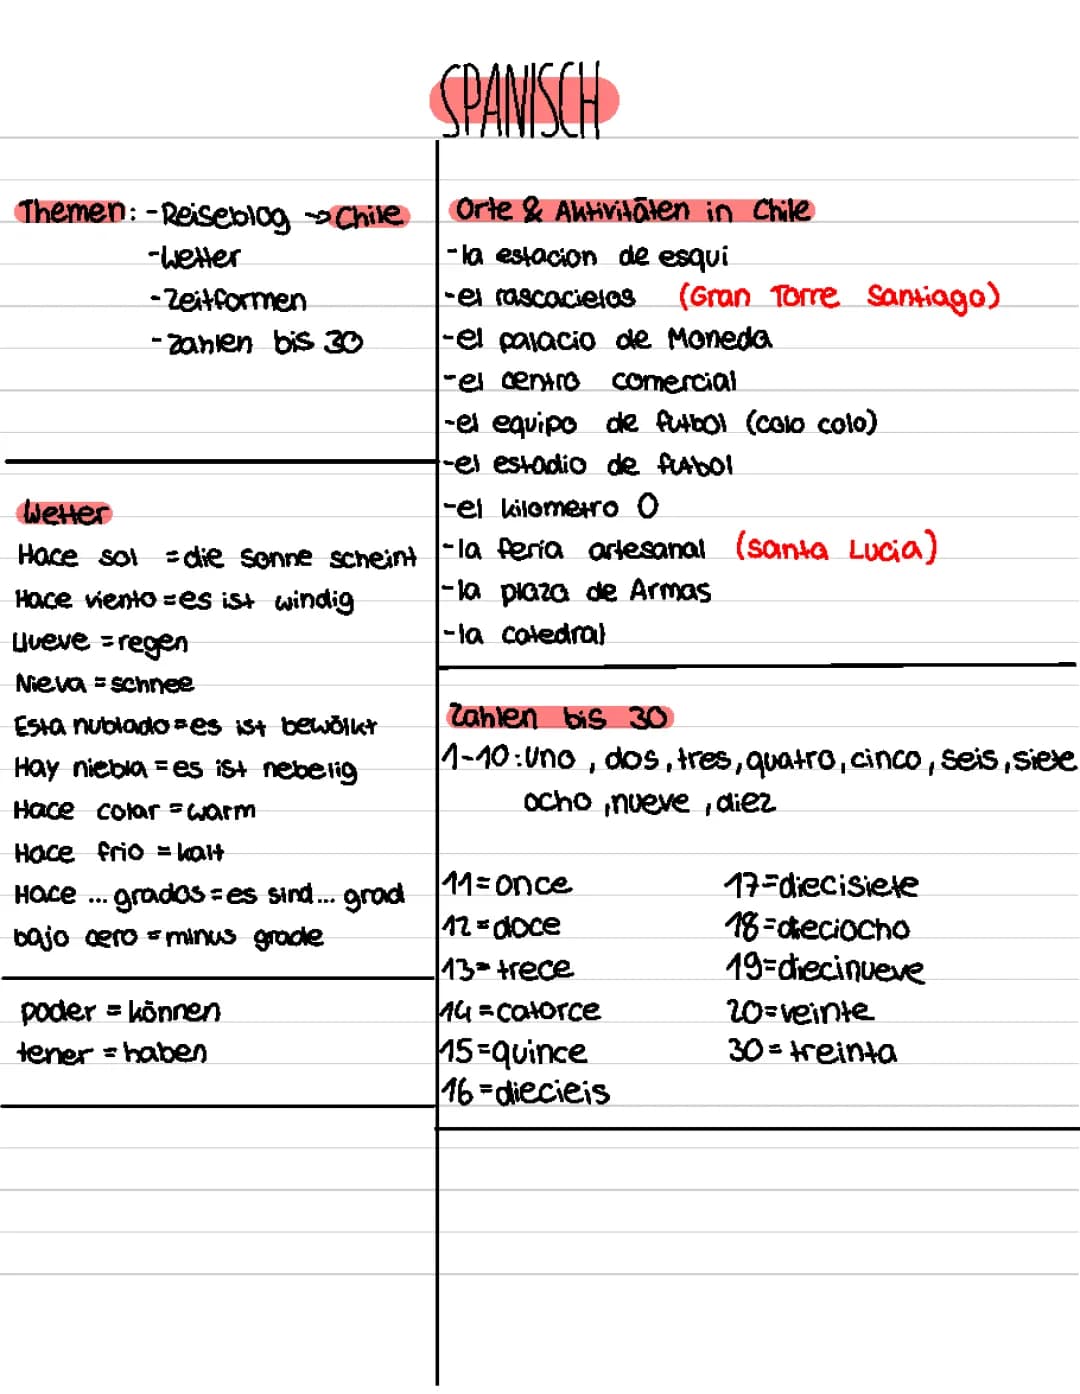 SPANISCH
Themen: -Reiseblog → Chile
-Wetter
-Zeitformen
-Zahlen bis 30
Wetter
Hace sol = die Sonne scheint
Hace viento = es ist windig
Llueve = regen
Nieva = schnee
Esta nublado = es ist bewölkt
Hay niebla = es ist nebelig
Hace calar = warm
Hace frio = kalt
Hace ... grados = es sind... grad
bajo cero = minus grade
poder = können
tener = haben
Orte & Aktivitäten in Chile
-la estacion de esqui
-el rascacielos (Gran Torre Santiago)
-el palacio de Moneda
-el centro comercial
-el equipo de futbol (colo colo)
-el estadio de futbol
-el kilometro 0
-la feria artesanal (Santa Lucia)
-la plaza de Armas
-la catedral
Zahlen bis 30
1-10: Uno, dos, tres, quatro, cinco, seis, siete
ocho, nueve, diez
11=once
12=doce
13=trece
14=catorce
15=quince
16=diecieis
17=diecisiete
18=dieciocho
19=diecinueve
20=veinte
30=treinta